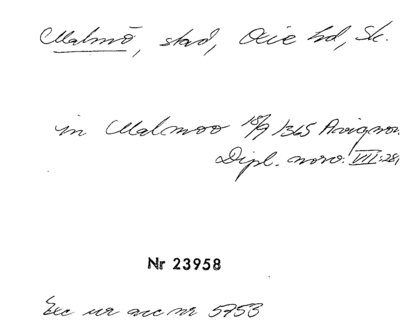 Malmö, stad, Oxie hd, Sk.
in Malmoo 18/9 1365 Avignon.
Dipl. norv. VII:281
Nr 23958
Exc ur acc nr 5753